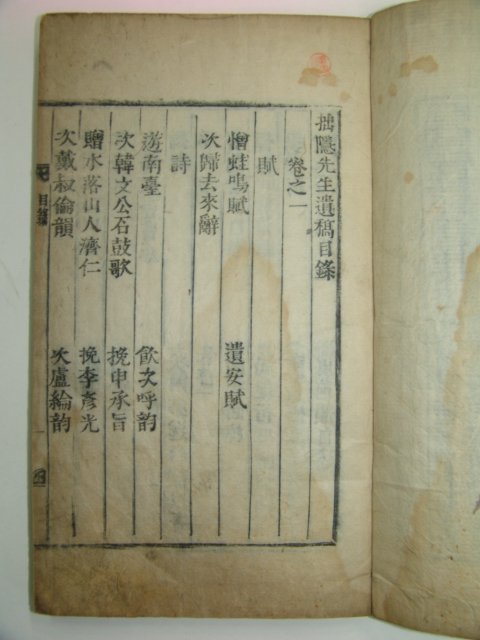 拙隱先生遺稿目錄
卷之一
賦
憎蛙鳴賦 遺安賦
次歸去來辭
詩
遊南臺 飮次呼韵
次韓文公石鼓歌 挽申承旨
贈水落山人濟仁 挽李彦光
次戴叔倫韻 次盧綸韵
目錄
一